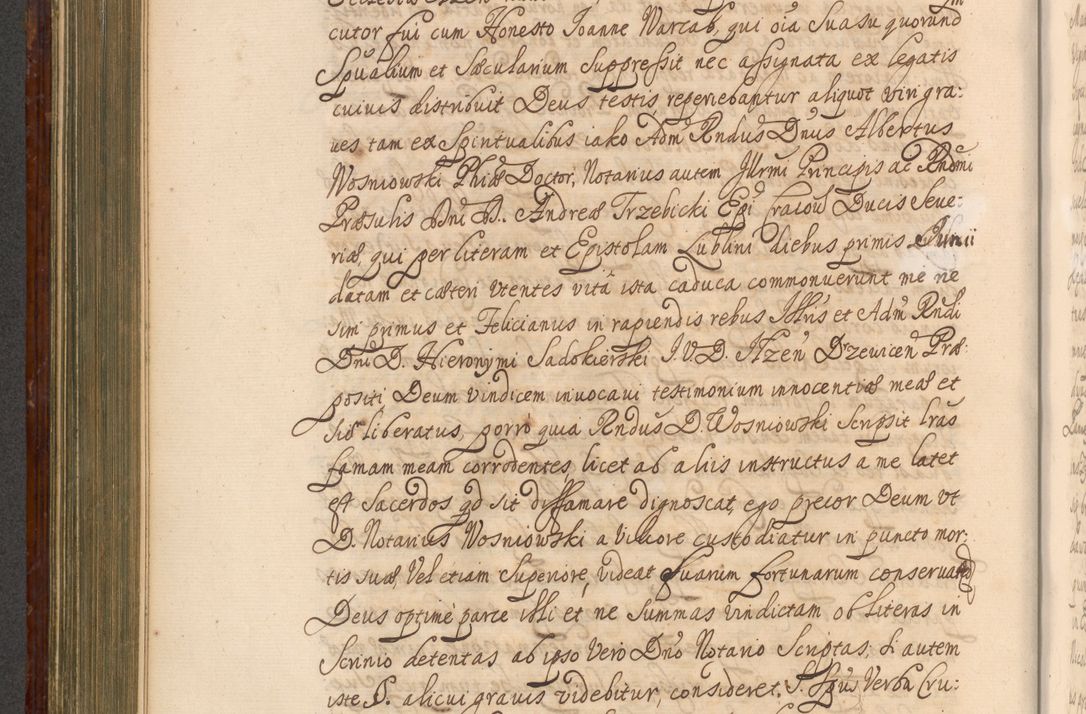 cutor fui cum Honesto Joanne Warcab, qui oîa Suasu quorund
Spûalium et Sæcularium Suppressit nec assignata ex legatis
cuivis distribuit Deus testis reperiebantur aliquot viri gra:
ves tam ex Spiritualibus iako Adm̃ Rndus Dnus Albertus
Wosniowski Phiæ Doctor, Notarius autem Jllrmi Principis ac Rndmi
Præsulis Dni D. Andreæ Trzebicki Epi Cracov Ducis Seve:
riæ, qui per literam et Epistolam Lublini diebus primis Junii
datam et cæteri utentes vitâ ista caduca commonuerunt me ne
sim primus et Felicianus in rapiendis rebus Jllris et Adm̃ Rndi
Dni D. Hieronymi Sadokierski J. V. D. Jlzen̄ Drzewicen̄ Præ:
positi Deum vindicem invocavi testimonium innocentiæ meæ et
sic liberatus, porro quia Rndus D. Wosniowski Scripsit lras
famam meam corrodentes, licet ab aliis instructus a me latet
est Sacerdos qd sit diffamare dignoscat, ego precor Deum vt
D. Notarius Wosniowski a viliore custodiatur in puncto mor:
tis suæ, Vel etiam Superiore, videat suarum fortunarum conservato
Deus optime parce illi et ne Summas vindictam ob literas in
Scrinio detentas ab ipso Vero Dno Notario Scriptas, Si autem
iste P. alicui gravis videbitur, consideret, S. Spus Verba Cru: